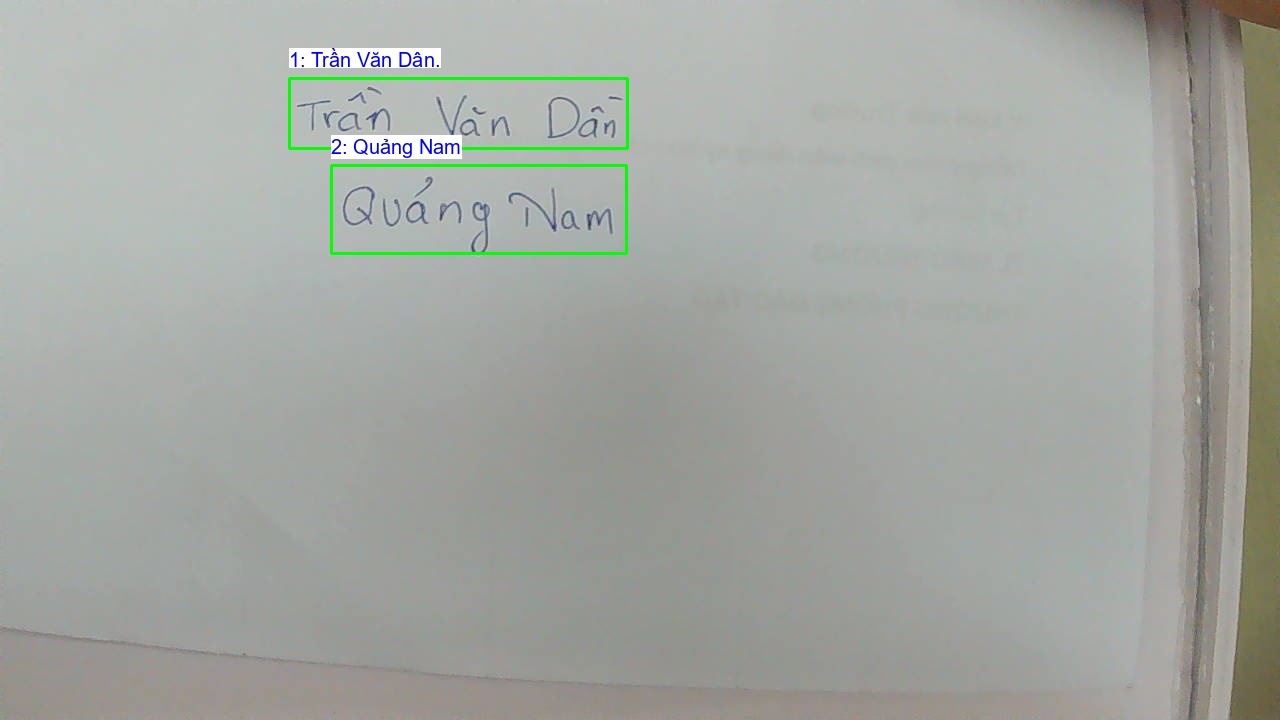 1: Trần Văn Dân.
Trần Văn Dần
2: Quảng Nam
Quảng Nam